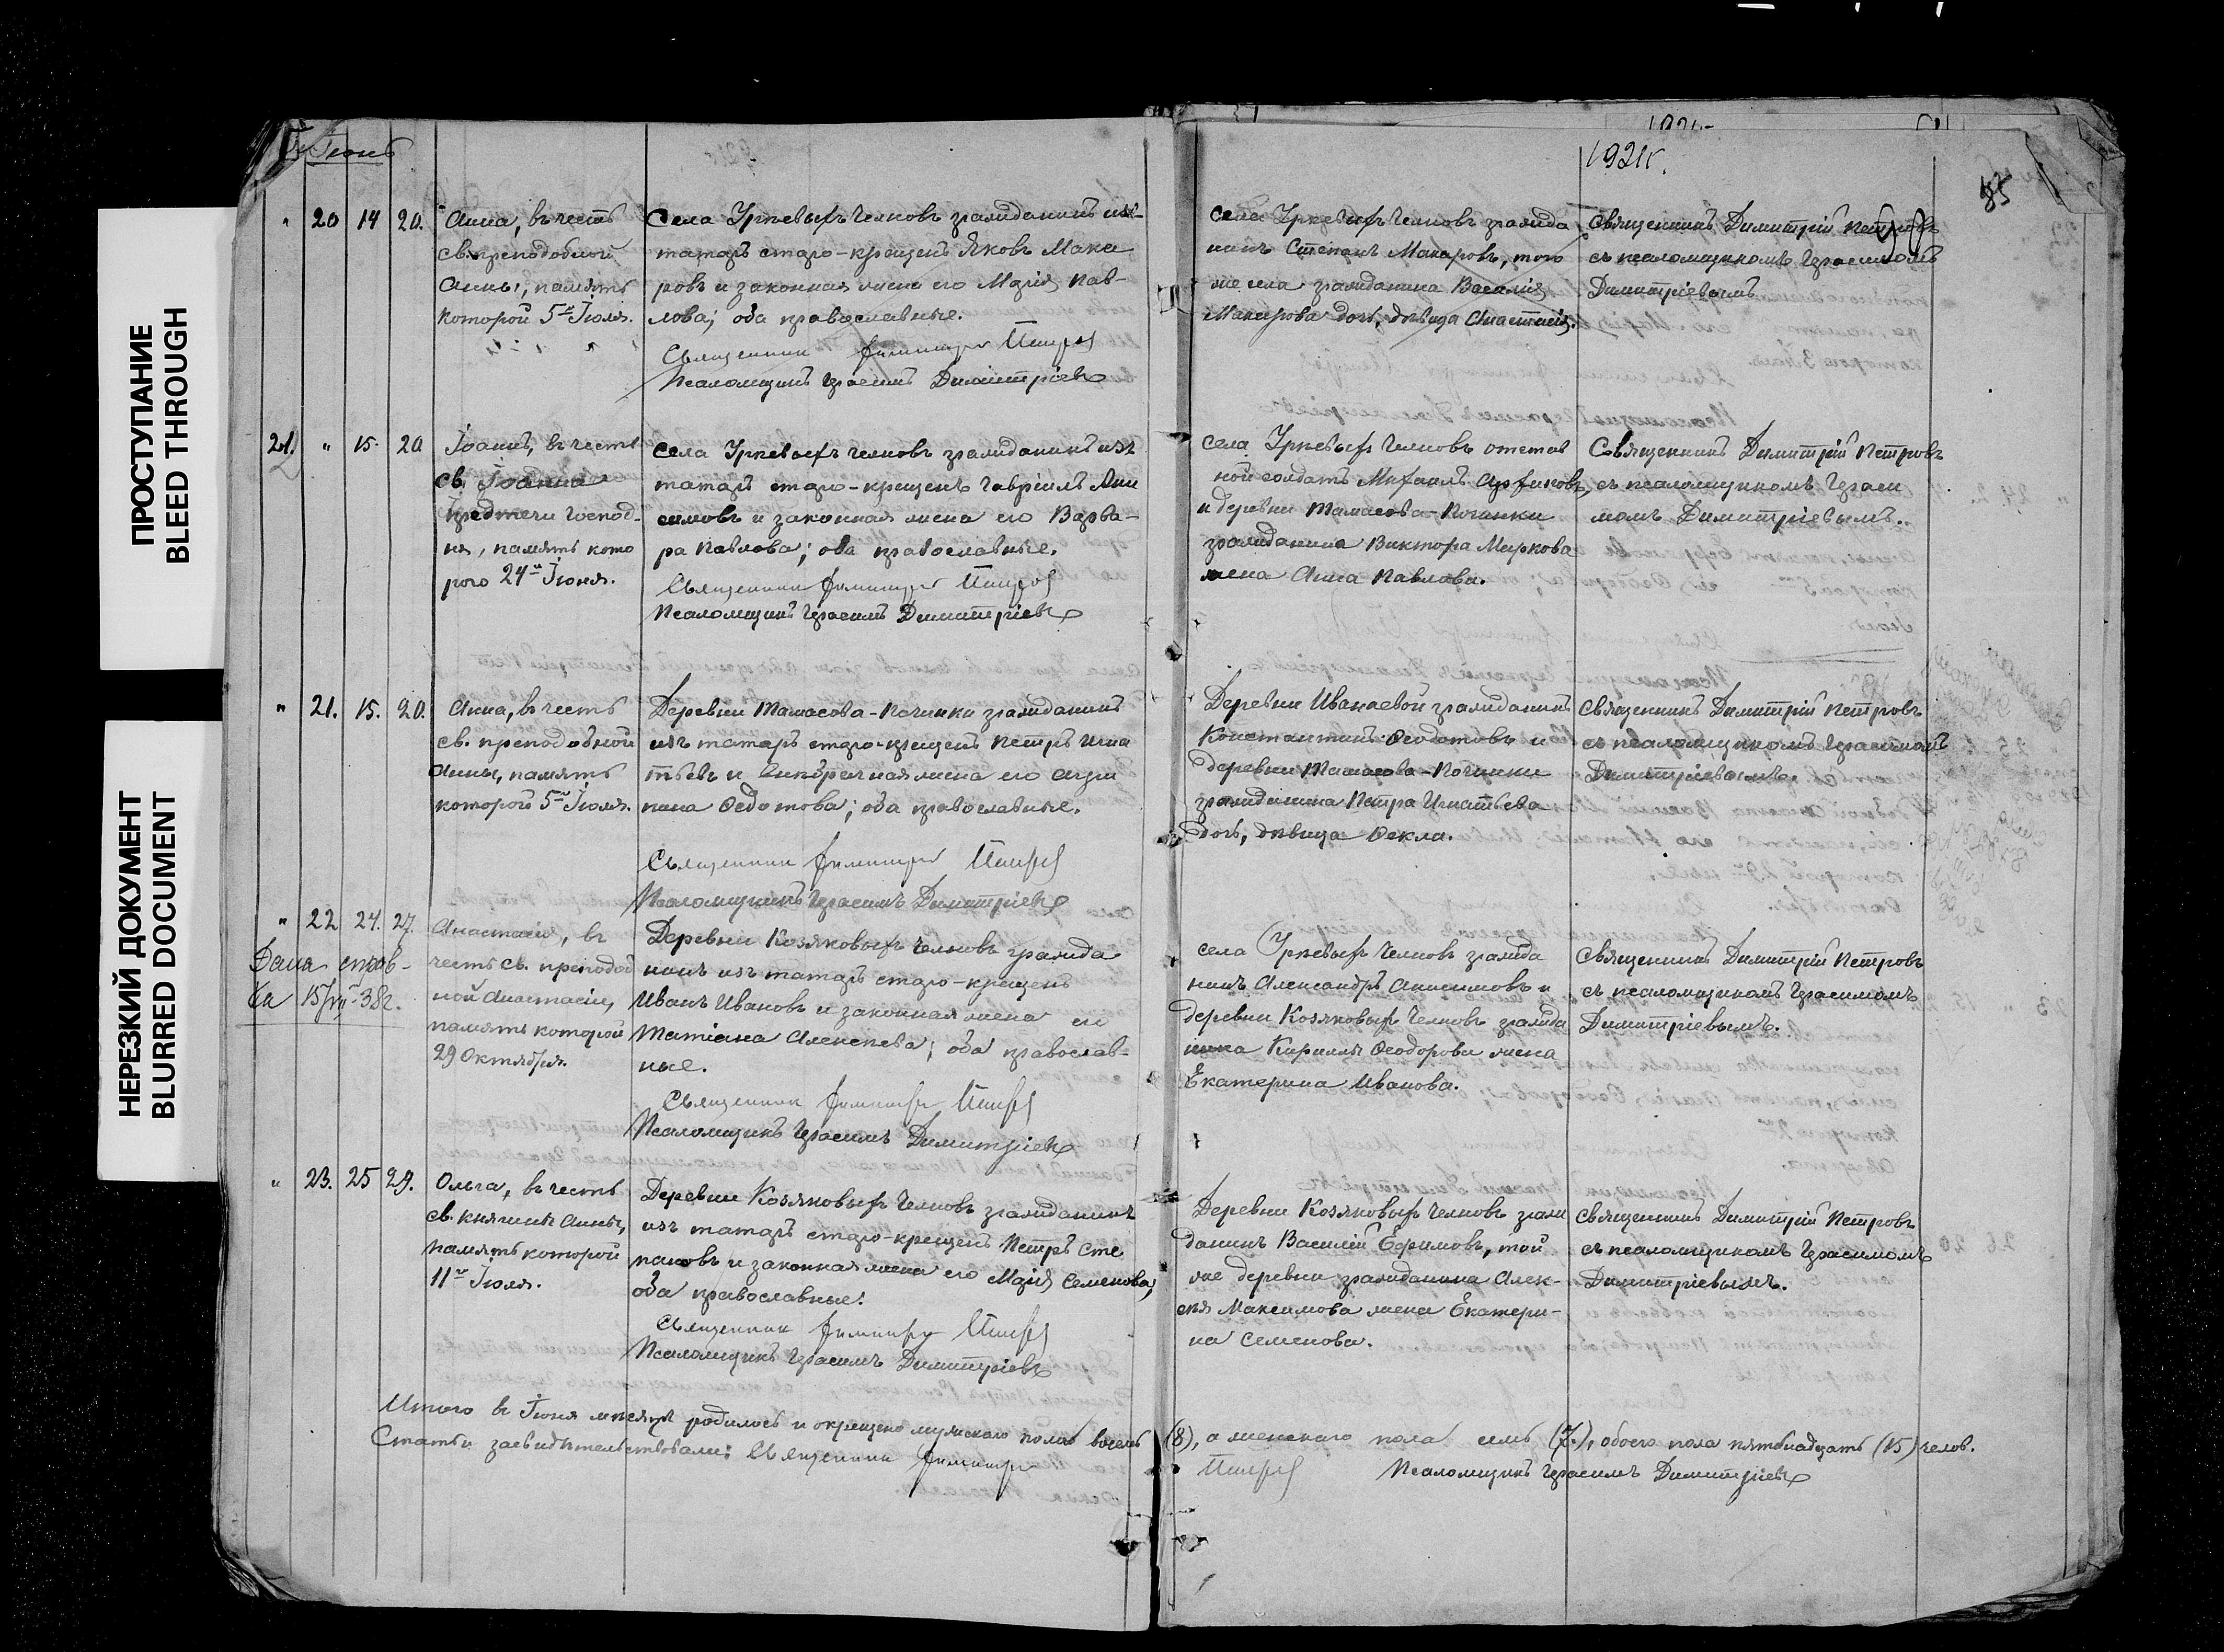 ПРОСТУПАНИЕ
BLEED THROUGH
НЕРЕЗКИЙ ДОКУМЕНТ
BLURRED DOCUMENT
Іюнь
1921г.
85
" 20 14 20.
Анна, въ честь
св. преподобной
Анны, память
которой 5го Іюля.
Села Уркевыхъ Челновъ гражданинъ изъ
татаръ старо-крещенъ Яковъ Мака
ровъ и законная жена его Марія Пав-
лова; оба православные.
Священникъ Димитрій Петровъ
Псаломщикъ Герасимъ Димитріевъ
села Уркевыхъ Челновъ гражда
нинъ Степанъ Макаровъ, того
же села гражданина Василія
Макарова дочь, дѣвица Анастасія.
Священникъ Димитрій Петровъ
съ псаломщикомъ Герасимомъ
Димитріевымъ
21. " 15. 20
Іоаннъ, въ честь
св. Іоанна
Предтечи Господ-
ня, память кото
рого 24го Іюня.
Села Уркевыхъ Челновъ гражданинъ изъ
татаръ старо-крещенъ Гавріилъ Ани
симовъ и законная жена его Варва-
ра Павлова; оба православные.
Священникъ Димитрій Петровъ
Псаломщикъ Герасимъ Димитріевъ
села Уркевыхъ Челновъ отстав
ной солдатъ Михаилъ
и деревни Тамасова-Починки
гражданина Виктора Маркова
жена Анна Павлова.
Священникъ Димитрій Петровъ
съ псаломщикомъ Гераси
момъ Димитріевымъ.
" 21. 15. 20.
Анна, въ честь
св. преподобной
Анны, память
которой 5го Іюля.
Деревни Тамасова-Починки гражданинъ
изъ татаръ старо-крещенъ Петръ Игна
тьевъ и жена его Агри
пина Ѳедотова; оба православные.
Священникъ Димитрій Петровъ
Псаломщикъ Герасимъ Димитріевъ
Деревни Иванаевой гражданинъ
Константинъ Ѳеодотовъ и
деревни Тамасова-Починки
гражданина Петра Игнатьева
дочь, дѣвица Ѳекла.
Священникъ Димитрій Петровъ
съ псаломщикомъ Герасимомъ
Димитріевымъ.
" 22 24. 27.
Дана справ-
ка 15/VII-38г.
Анастасія, въ
честь св. преподоб
ной Анастасіи,
память которой
29 Октября.
Деревни Козяковыхъ Челновъ гражда
нинъ изъ татаръ старо-крещенъ
Иванъ Ивановъ и законная жена его
Татіана Алексѣева; оба православ-
ные.
Священникъ Димитрій Петровъ
Псаломщикъ Герасимъ Димитріевъ
села Уркевыхъ Челновъ гражда
нинъ Александръ Анисимовъ и
деревни Козяковыхъ Челновъ гражда
нина Кирилла Ѳеодорова жена
Екатерина Иванова.
Священникъ Димитрій Петровъ
съ псаломщикомъ Герасимомъ
Димитріевымъ.
" 23. 25 29.
Ольга, въ честь
св. княгини Анны,
память которой
11го Іюля.
Деревни Козяковыхъ Челновъ гражданинъ
изъ татаръ старо-крещенъ Петръ Сте
пановъ и законная жена его Марія Семенова;
оба православные.
Священникъ Димитрій Петровъ
Псаломщикъ Герасимъ Димитріевъ
Деревни Козяковыхъ Челновъ граж
данинъ Василій Ефимовъ, той
же деревни гражданина Алек-
сѣя Максимова жена Екатери-
на Семенова.
Священникъ Димитрій Петровъ
съ псаломщикомъ Герасимомъ
Димитріевымъ.
Итого въ Іюня мѣсяцѣ родилось и окрещено мужскаго пола восемь (8), а женскаго пола семь (7.), обоего пола пятнадцать (15) челов.
Статьи засвидѣтельствовали: Священникъ Димитрій Петровъ Псаломщикъ Герасимъ Димитріевъ